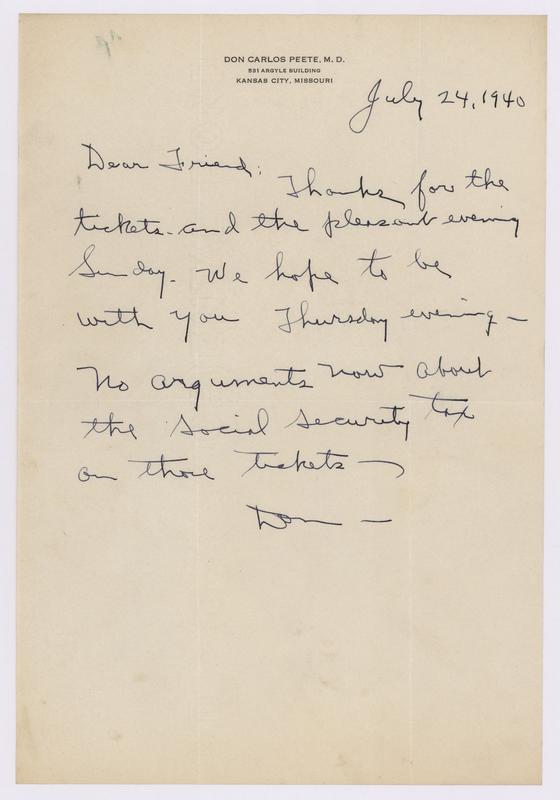 DON CARLOS PEETE, M. D.
531 ARGYLE BUILDING
KANSAS CITY, MISSOURI
July 24, 1940
Dear Friend:
Thanks for the
tickets - and the pleasant evening
Sunday. We hope to be
with you Thursday evening -
No arguments now about
the social security tax
on those tickets -
Don -